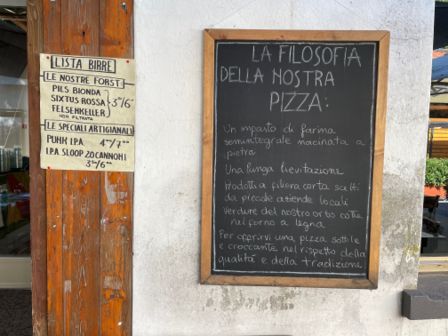 LISTA BIRRE
LE NOSTRE FORST
PILS BIONDA
SIXTUS ROSSA
FELSENKELLER
NON FILTRATA
3€/6€
LE SPECIALI ARTIGIANALI
PUNK I.P.A.
I.P.A SLOOP 20 CANNONI
LA FILOSOFIA
DELLA NOSTRA
PIZZA:
Un impasto di farina
semintegrale macinata a
pietra
Una lunga lievitazione
Prodotti a filiera corta scelti
da piccole aziende locali
Verdure del nostro orto cotte
nel forno a legna
Per offrirvi una pizza sottile
e croccante nel rispetto della
qualità e della tradizione